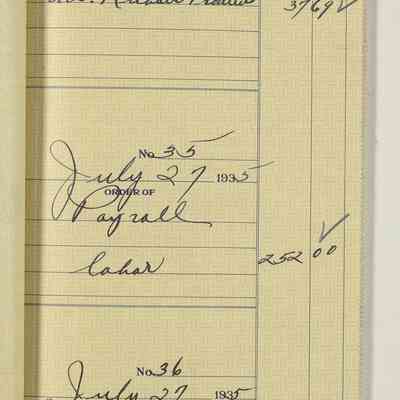 3769 ✓
No. 35
July 27 1935
ORDER OF
Payrall
252 00 ✓
No. 36
July 27 1935